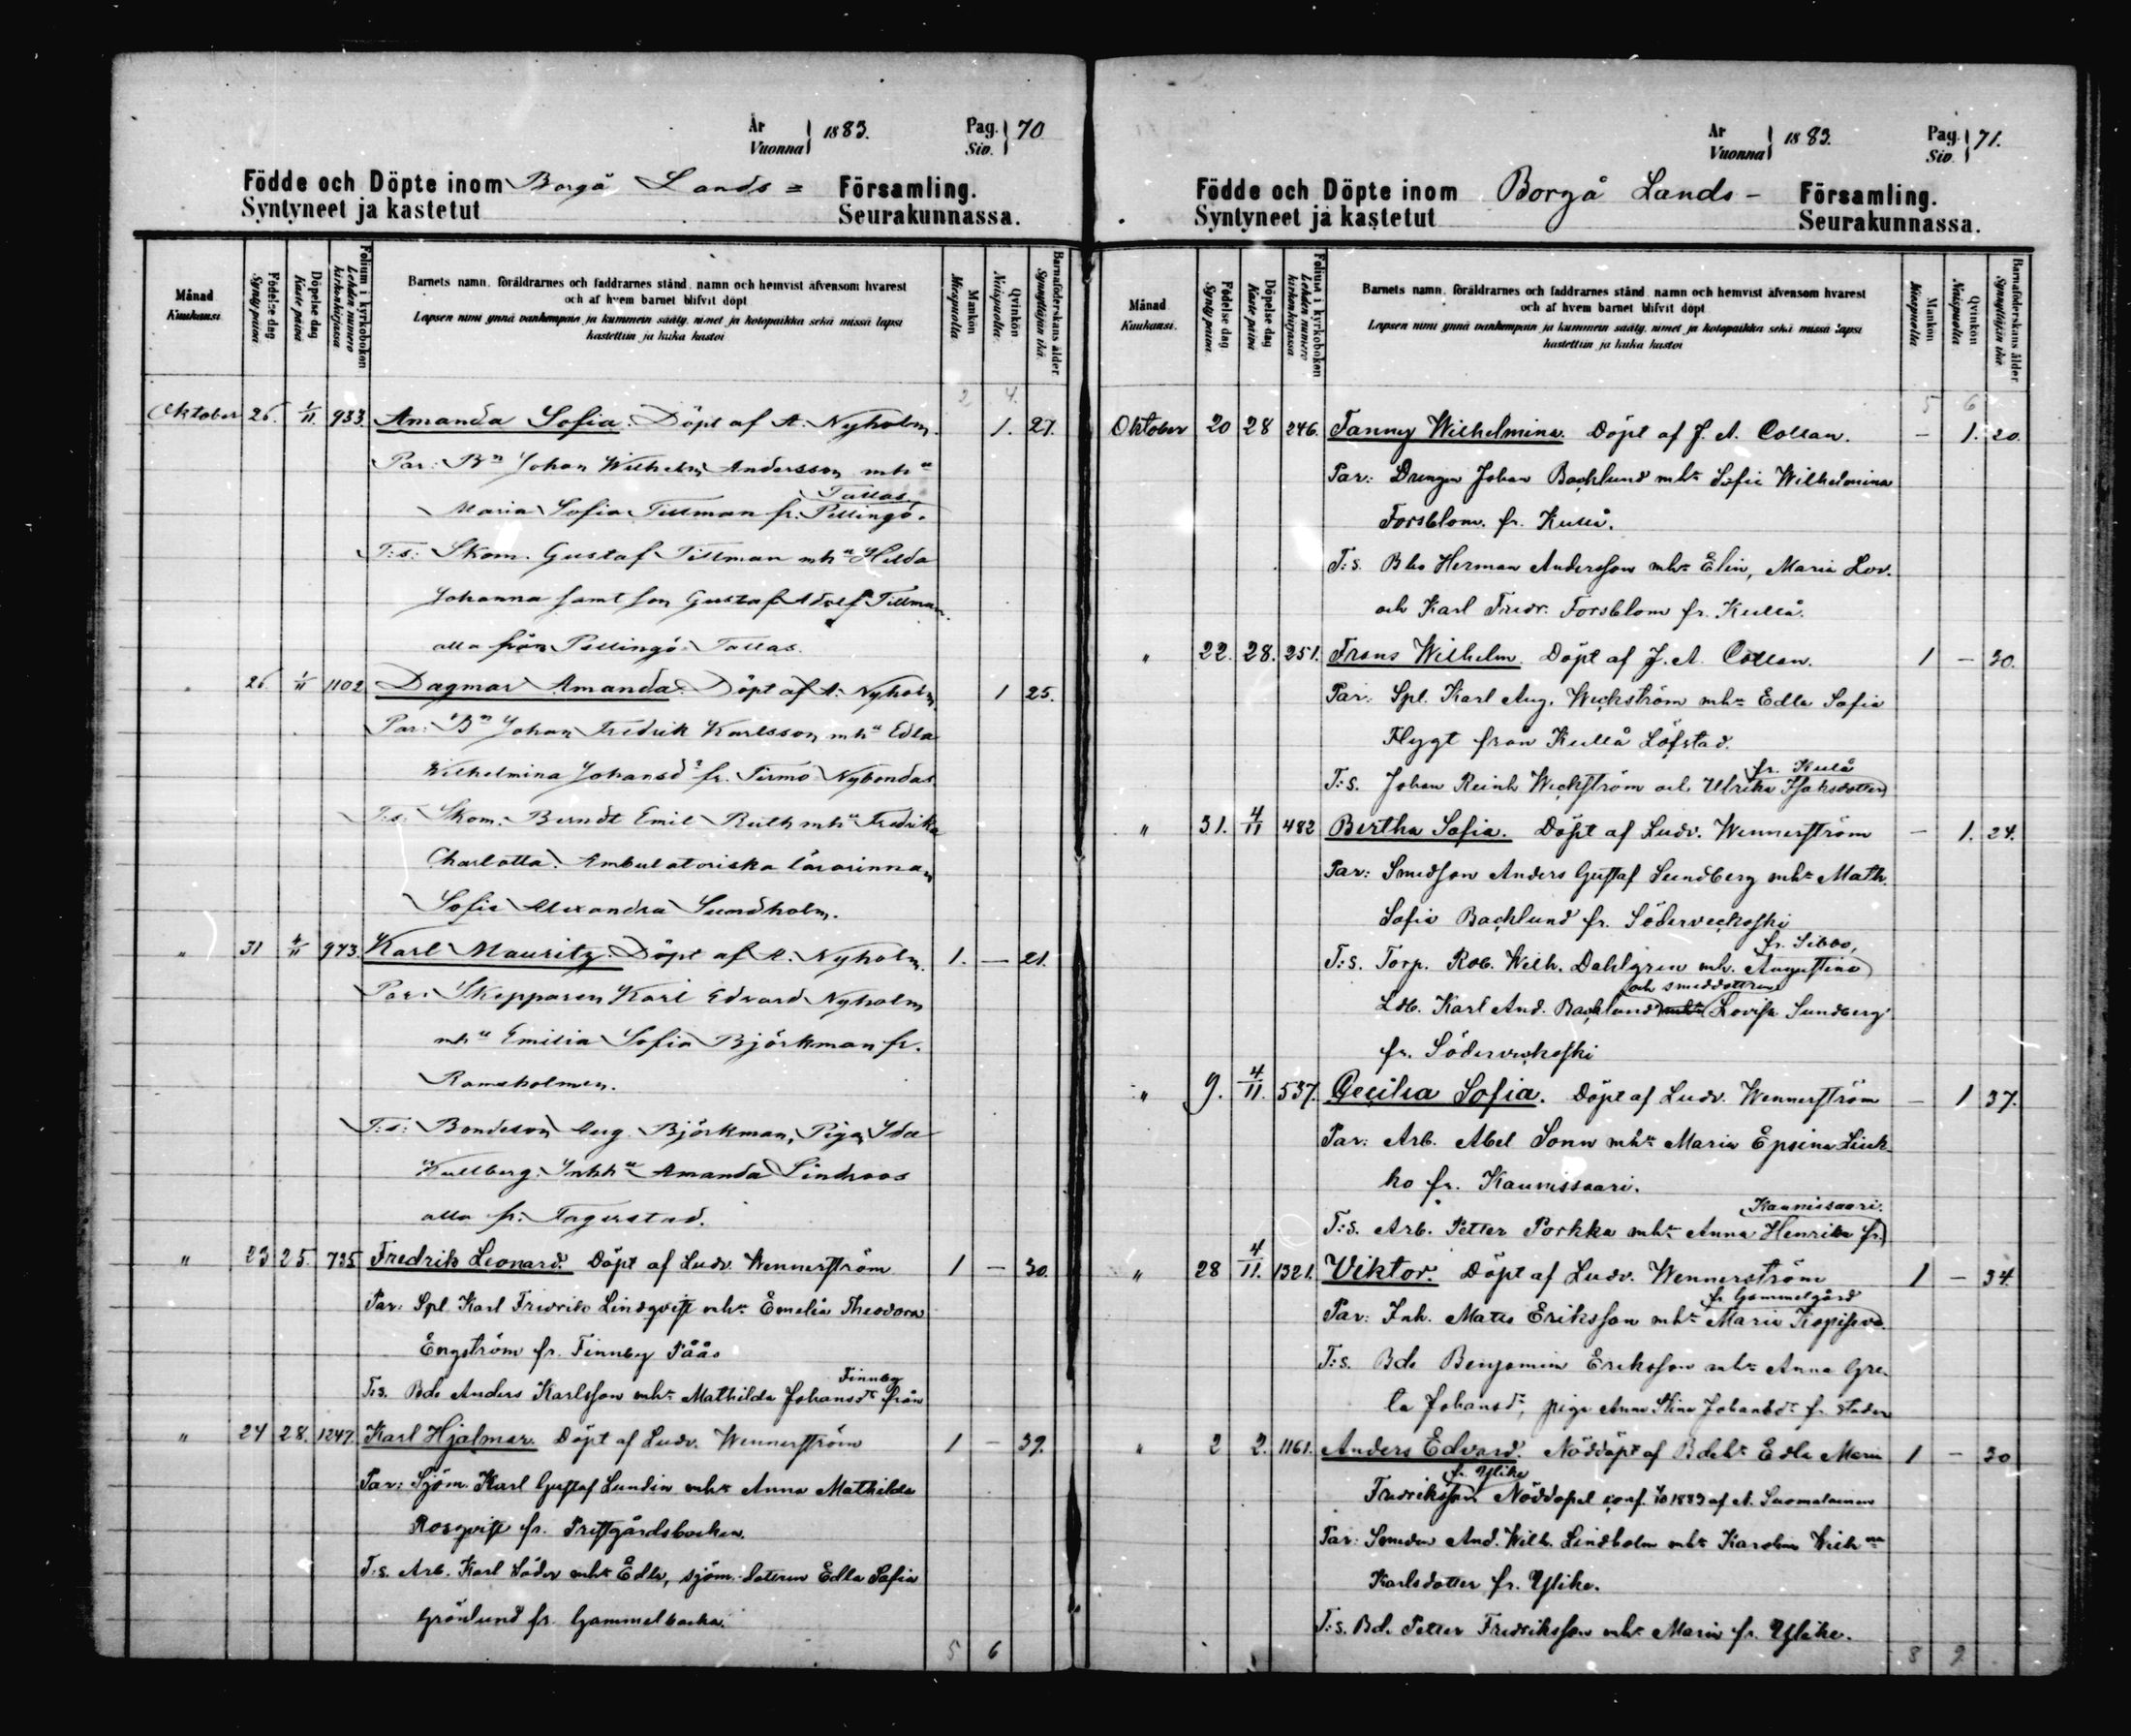 År
Vuonna
1883.
Pag.
Siv.
70
Födde och Döpte inom Borgå Lands= Församling.
Syntyneet ja kastetut Seurakunnassa.
Månad
Kuukausi
Födelse dag
Synty päivä
Döpelse dag
Kaste päivä
Folium i kyrkoboken
Lehden numero kirkonkirjassa
Barnets namn, föräldrarnes och faddrarnes stånd, namn och hemvist äfvensom hvarest
och af hvem barnet blifvit döpt
Lapsen nimi ynnä vanhempain ja kummein sääty, nimet ja kotopaikka sekä missä lapsi
kastettiin ja kuka kastoi
Mankön
Miespuolta
Qvinkön
Naispuolta
Barnaföderskans ålder
Synnyttäjän ikä
2 4.
Oktober 26. 1/11 933. Amanda Sofia. Döpt af A. Nyholm. 1. 27.
Par: Bn Johan Wilhelm Andersson mhu
Tallas
Maria Sofia Tillman fr. Pellingö.
T:s: Skom. Gustaf Tillman mhu Hilda
Johanna samt son Gustaf Adolf Tillman.
alla från Pellingö Tallas.
" 26. 1/11 1102 Dagmar Amanda. Döpt af A. Nyholm 1 25.
Par: Bn Johan Fredrik Karlsson mhu Edla
Wilhelmina Johansdr fr. Tirmo Nybondas.
T:s: Skom. Berndt Emil Ruth mhu Fredrika
Charlotta. Ambulatoriska lärarinnan
Sofia Alexandra Sundholm.
" 31 4/11 973. Karl Mauritz. Döpt af A. Nyholm. 1. — 21.
Par: Skepparen Karl Edvard Nyholm
mhu Emilia Sofia Björkman fr.
Ramsholmen.
T:s: Bondeson Aug. Björkman, Pigan Ida
Kullberg. Inhhu Amanda Lindroos
alla fr. Fagerstad.
" 23 25. 735 Fredrik Leonard. Döpt af Ludv. Wennerström 1 — 30.
Par: Spl. Karl Fredrik Lindqvist mhu Emelia Theodora
Engström fr. Finnby Påås
Finnby
T:s. Bde Anders Karlsson mhu Mathilda Johansdr från
" 24 28. 1247. Karl Hjalmar. Döpt af Ludv. Wennerström 1 — 39.
Par: Sjöm. Karl Gustaf Lundin mhu Anna Mathilda
Rosqvist fr. Prestgårdsbacken.
T:s. Arb. Karl Söder mhu Edla, sjöm. dottern Edla Sofia
Grönlund fr. Gammelbacka.
5 6
År
Vuonna
1883.
Pag.
Siv.
71.
Födde och Döpte inom Borgå Lands- Församling.
Syntyneet ja kastetut Seurakunnassa.
Månad
Kuukausi.
Födelse dag
Synty päivä
Döpelse dag
Kaste päivä
Folium i kyrkoboken
Lehden numero kirkonkirjassa
Barnets namn, föräldrarnes och faddrarnes stånd, namn och hemvist äfvensom hvarest
och af hvem barnet blifvit döpt
Lapsen nimi ynnä vanhempain ja kummein sääty, nimet ja kotopaikka sekä missä lapsi
kastettiin ja kuka kastoi
Mankön
Miespuolta
Qvinkön
Naispuolta
Barnaföderskans ålder
Synnyttäjän ikä
5 6
Oktober 20 28 246. Fanny Wilhelmina. Döpt af J. A. Collan. — 1. 20.
Par: Drengen Johan Backlund mhu Sofia Wilhelmina
Forsblom. fr. Kullå.
T:s. Bbo Herman Andersson mhu Elin, Maria Lov.
och Karl Fredr. Forsblom fr. Kullå.
" 22. 28. 251. Frans Wilhelm. Döpt af J. A. Collan. 1 — 30.
Par: Spl. Karl Aug. Weckström mhu Edla Sofia
Flygt från Kullå Löfstad.
fr. Kulå
T:s. Johan Reinh Weckström och Ulrika Isaksdotter
" 31. 4/11 482 Bertha Sofia. Döpt af Ludv. Wennerström — 1. 24.
Par: Smedson Anders Gustaf Sundberg mhu Math.
Sofia Backlund fr. Söderveckoski
fr. Sibbo,
T:s. Torp. Rob. Wilh. Dahlgren mh. Augustina
och smeddottren
Ldb. Karl And. Backlund Lovisa Sundberg
fr. Söderveckoski
" 9. 4/11. 537. Cecilia Sofia. Döpt af Ludv. Wennerström — 1 37.
Par: Arb. Abel Sonn mhu Maria Epsina Liuk-
ko fr. Kaunissaari.
Kaunissaari.
T:s. Arb. Petter Porkka mhu Anna Henrika fr.
" 28 4/11. 1321. Viktor. Döpt af Ludv. Wennerström 1 — 34.
fr Gammelgård
Par: Inh. Matts Eriksson mhu Maria
T:s. Bde Benjamin Eriksson mhu Anna Gre-
ta Johansdr, piga Anna Stina Johansdr fr. staden
" 2 2. 1161. Anders Edvard. Nöddöpt af Bdehu Edla Maria 1 — 30
fr. Ylike
Fredriksson Nöddopet konf. 1883 af A. Suomalainen
Par: Smeden And. Wilh. Lindholm mhu Karolina Wilhna
Karlsdotter fr. Ylike.
T:s. Bd. Petter Fredriksson mhu Maria fr. Ylike.
8 9.